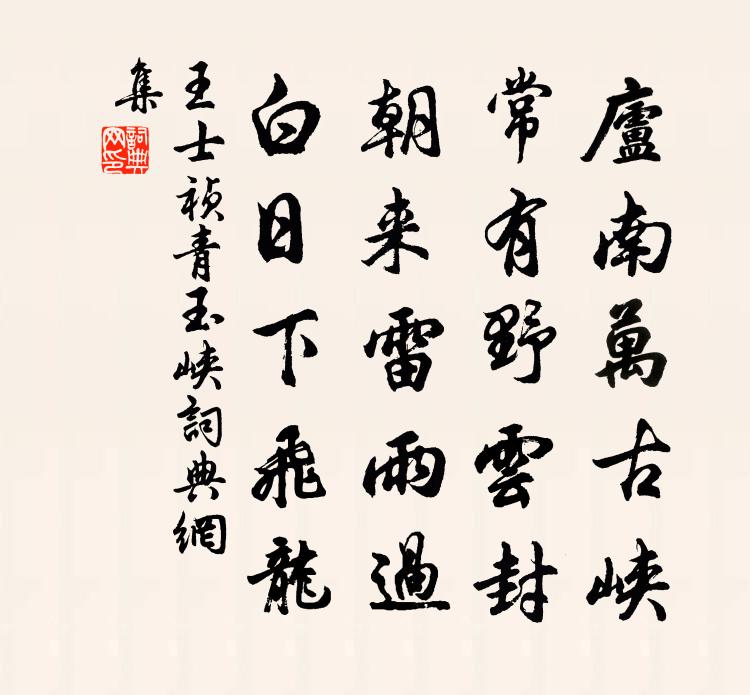 廬南萬古峽
常有野雲封
朝来雷雨過
白日下飛龍
王士祯青玉峽詞典網
集
詞典
网印